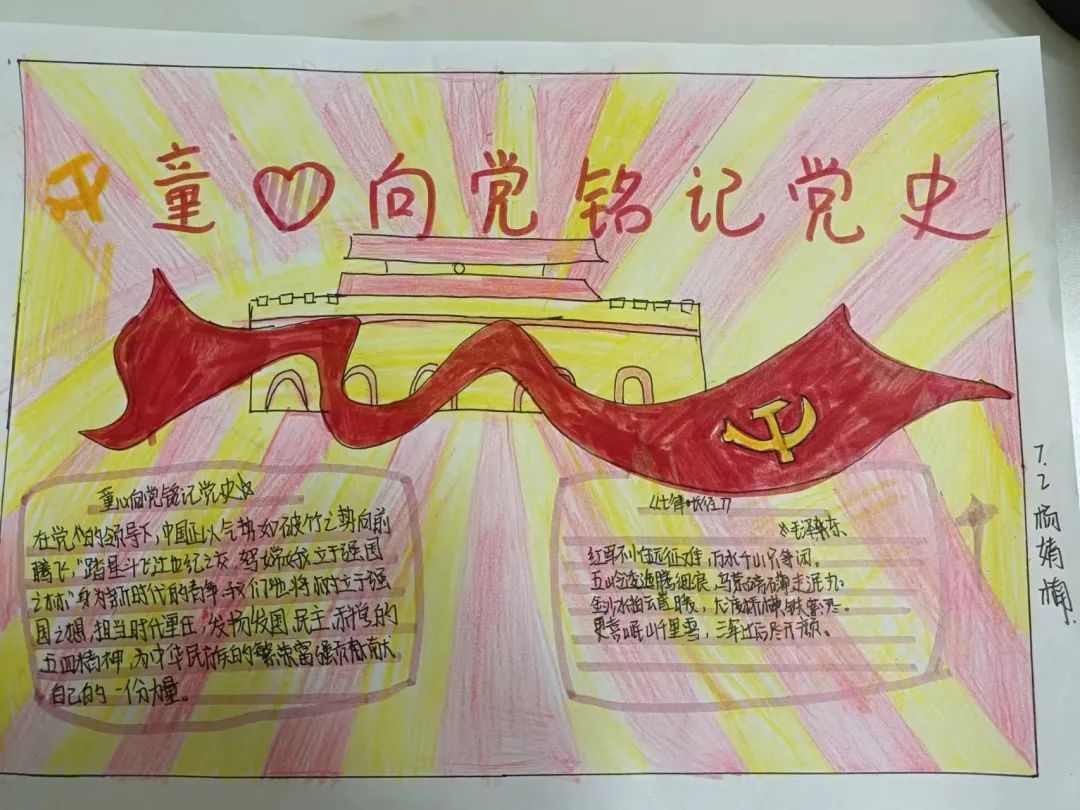 童 向党铭记党史
童心向党铭记党史
在党的领导下,中国正以气势如破竹之势向前
腾飞,踏星斗飞过世纪之交,努始屹立于强国
之林,身为新时代的青年,我们也将树立于强
国之想,担当时代重任,发扬爱国,民主,科学的
五四精神,为中华民族的繁荣富强贡献
自己的一份力量。
《七律·长征》
《毛泽东
红军不怕远征难,万水千山只等闲。
五岭逶迤腾细浪,乌蒙磅礴走泥丸。
金沙水拍云崖暖,大渡桥横铁索寒。
更喜岷山千里雪,三军过后尽开颜。
7.2 杨婧